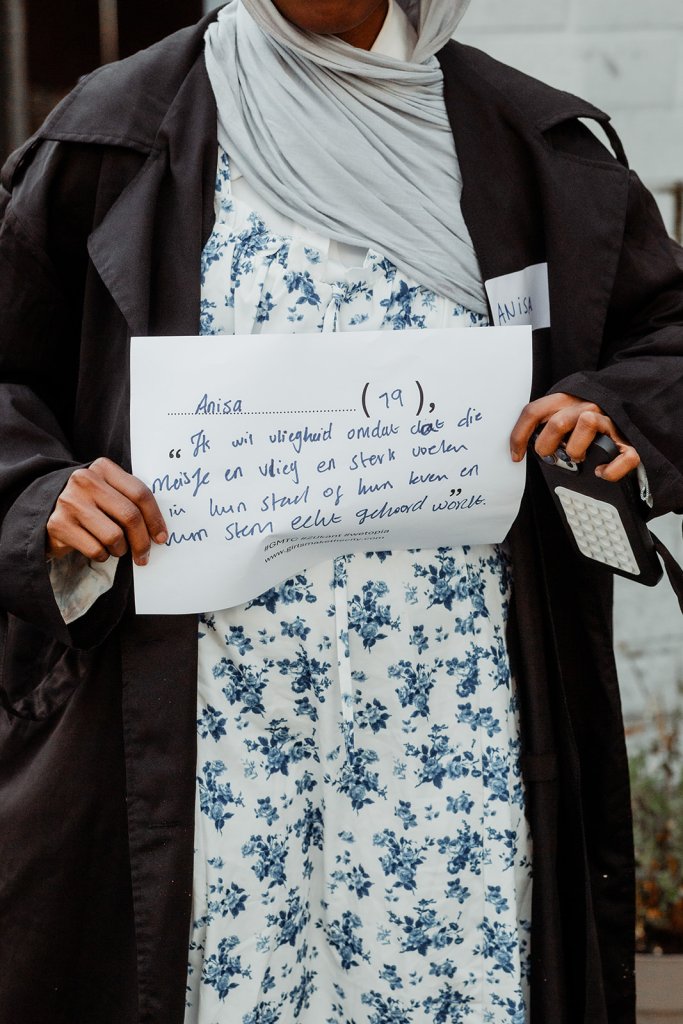 ANISA
Anisa (19),
“Ik wil vliegheid omdat dat die
meisje en vlieg en sterk voelen
in hun stad of hun leven en
hun stem echt gehoord wordt.”
#GMTC #zukant #wetopia
www.girlsmakethecity.com